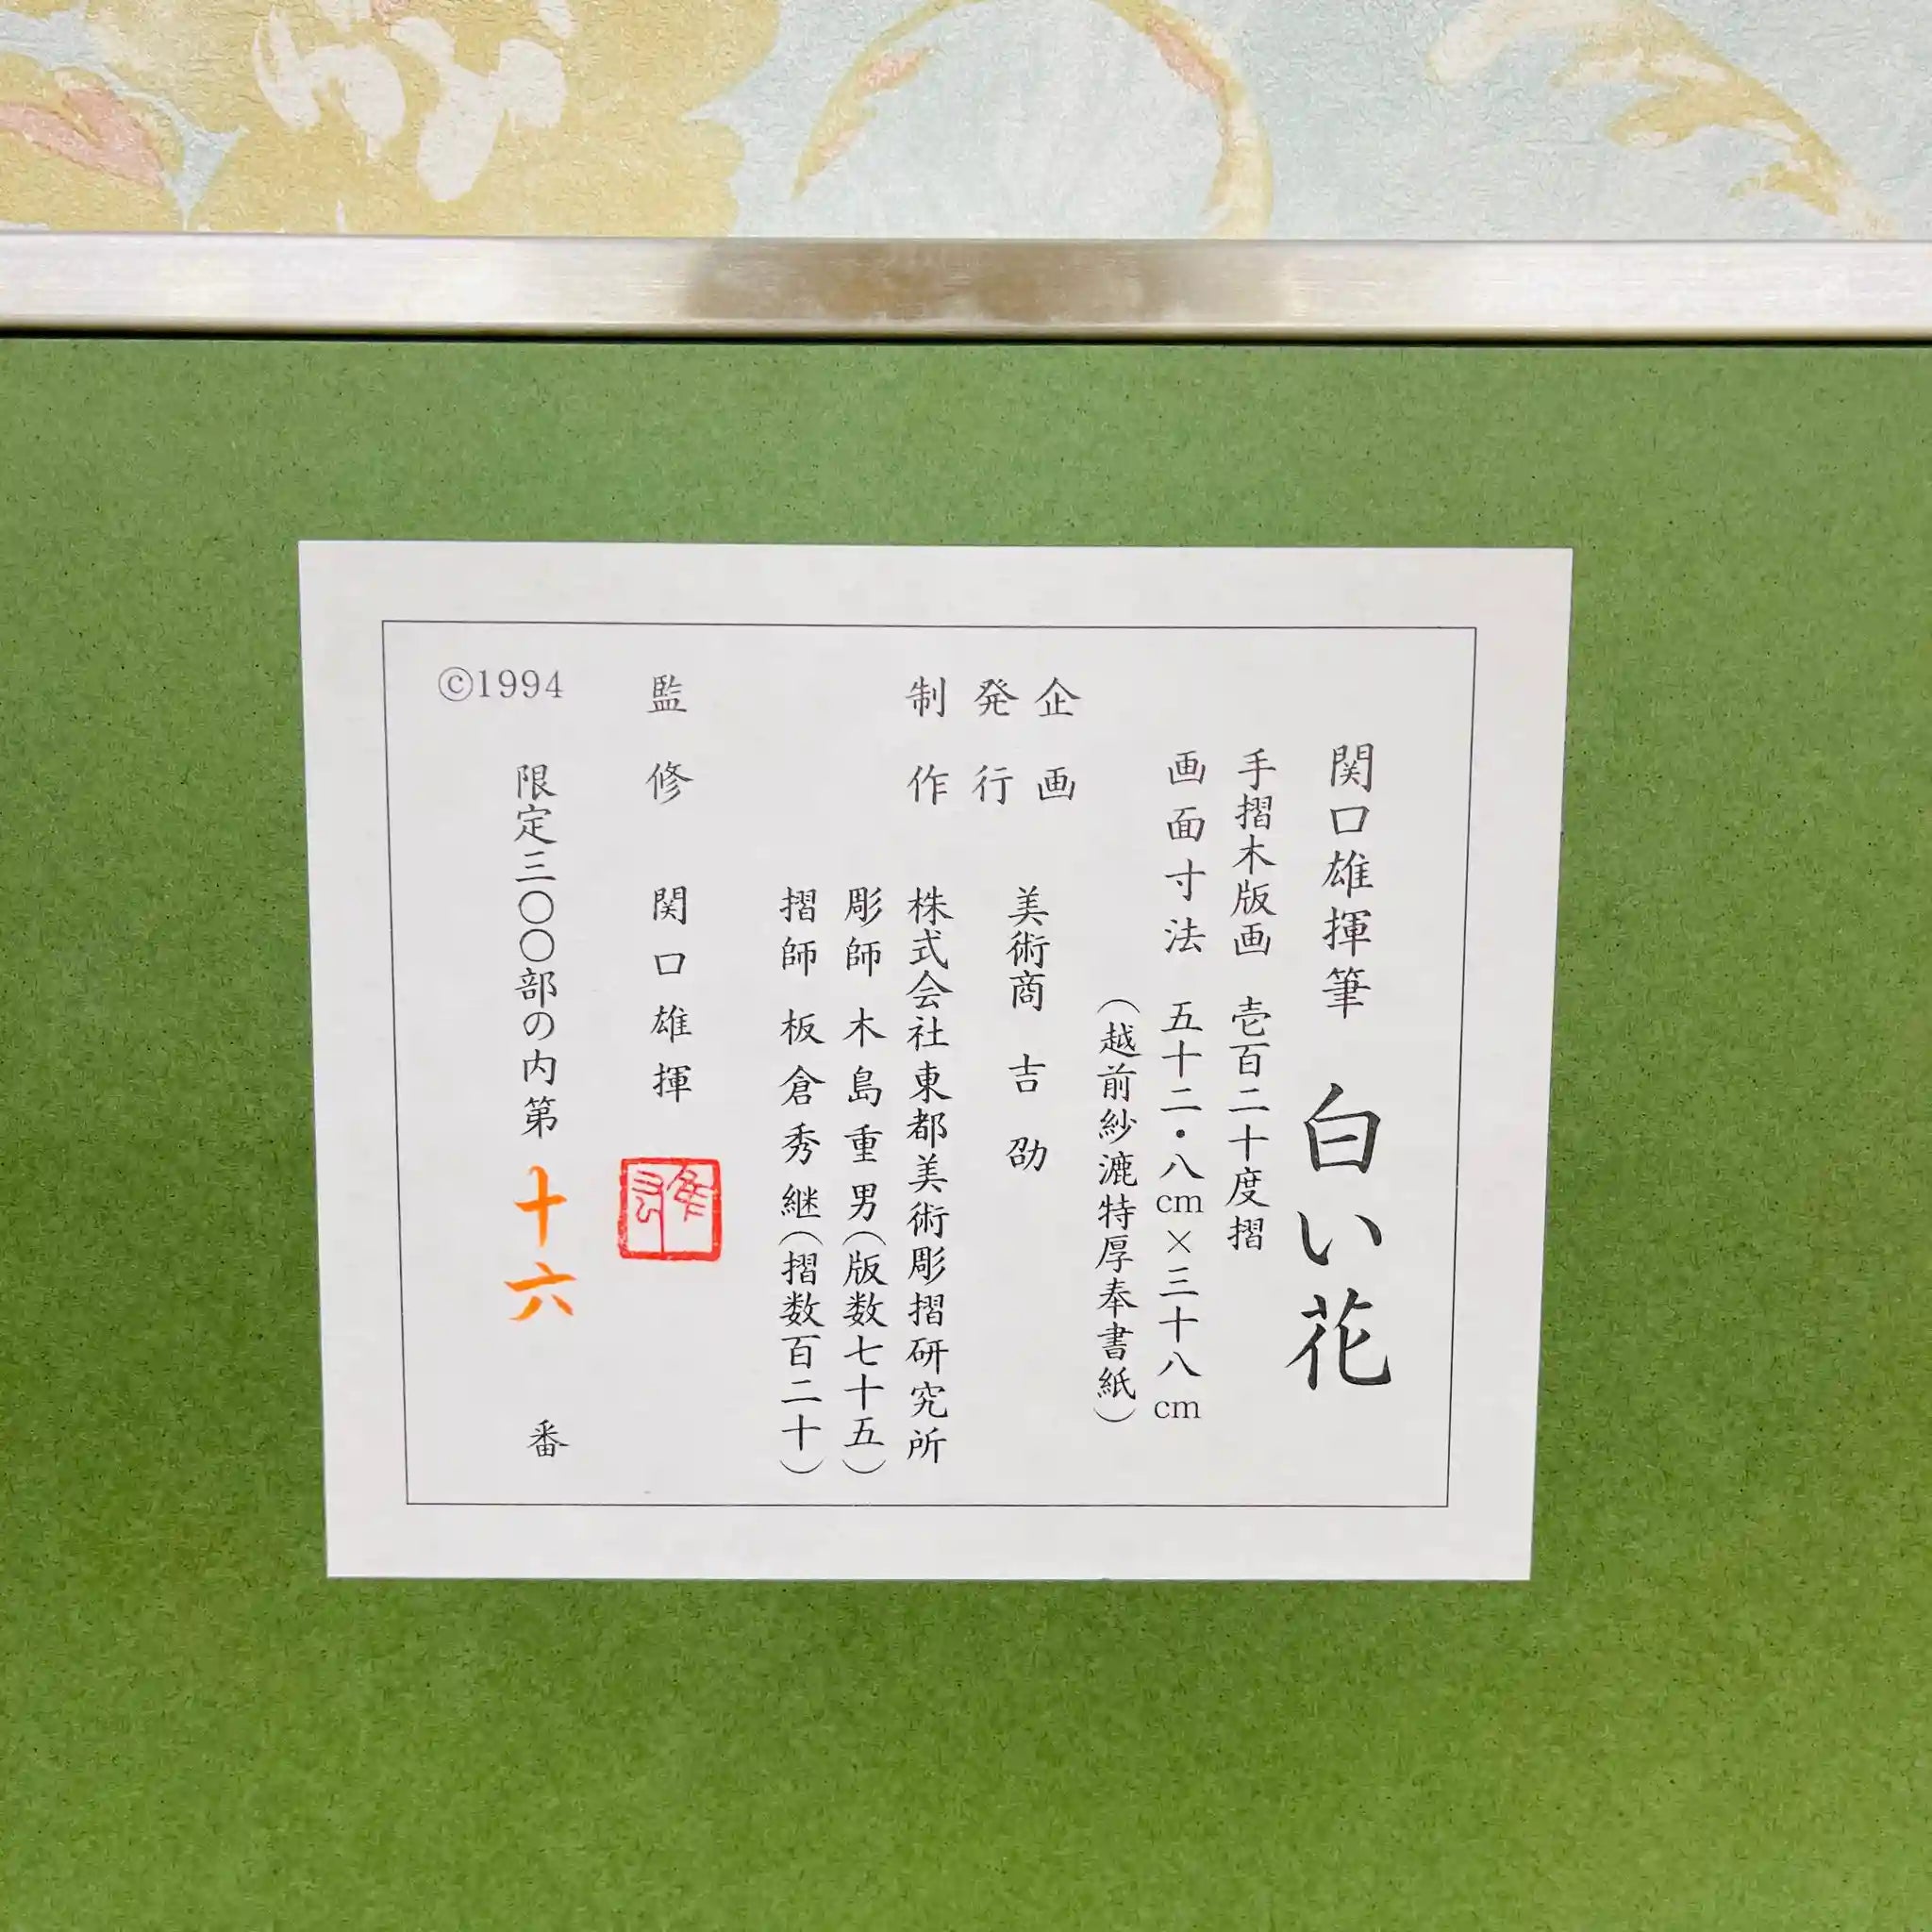 関口雄揮筆 白い花
手摺木版画 壱百二十度摺
画面寸法 五十二・八cm×三十八cm
（越前紗漉特厚奉書紙）
企画
発行
美術商 吉 劭
制作 株式会社東都美術彫摺研究所
彫師 木島重男（版数七十五）
摺師 板倉秀継（摺数百二十）
監修 関口雄揮
限定三〇〇部の内第 十六 番
©1994